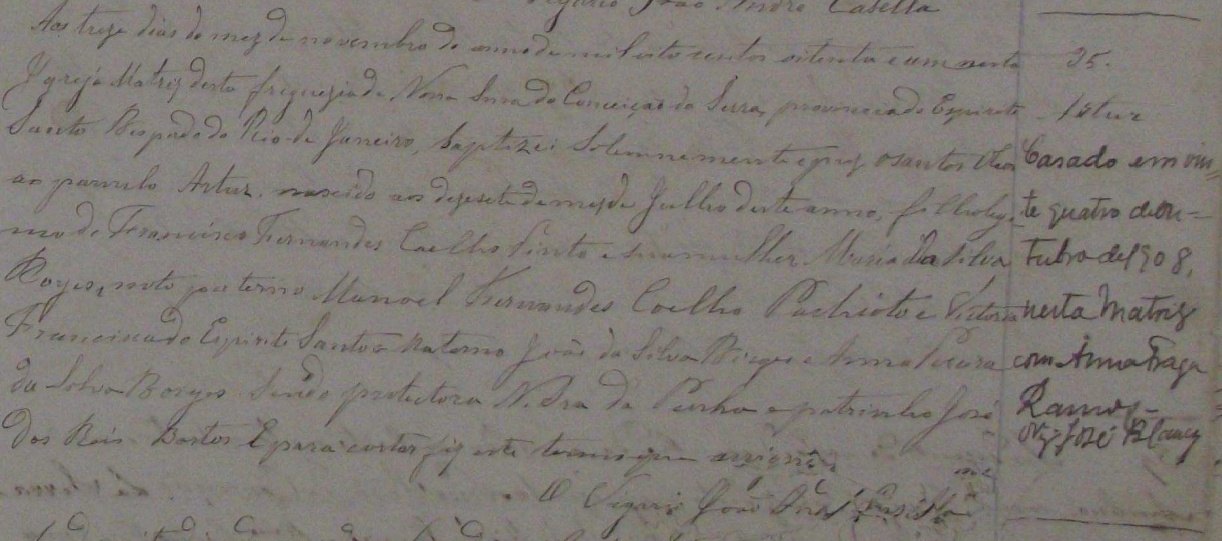 Vigario João Casella
Aos treze dias do mez de novembro do anno de mil oito centos oitenta e um nesta
Igreja Matriz desta freguezia de Nossa Snra da Conceição da Serra, provincia do Espirito
Santo Bispado do Rio de Janeiro, baptizei Solemnemente e puz os santos óleos
ao parvulo Artur. nascido aos dezesete do mez de Julho deste anno, filho legi-
mo de Francisco Fernandes Coelho Pinto e sua mulher Maria da Silva
Borges, neto paterno Manoel Fernandes Coelho e Victoria
Francisca do Espirito Santo e Materno João da Silva Borges e Anna
da Silva Borges Sendo protectora N. Sra da Penha e patrinho José
dos Reis Bastos E para constar fiz este termo que assignei
O Vigario João
25.
Artur
Casado em vin-
te quatro de ou-
tubro de 1908,
nesta Matriz
com Anna Fraga
Ramos-
Vig José